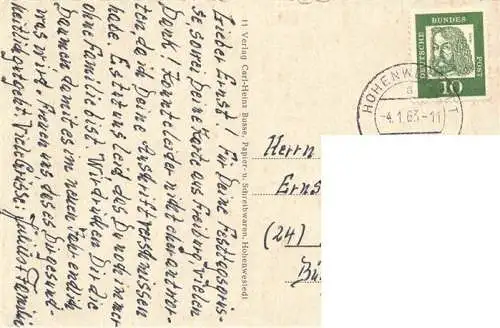 Lieber Ernst! Für Deine Festtagsgrüs-
se, sowie Deine Karte aus Freiburg vielen
Dank! Konnt leider nicht eher antwor-
ten, da ich Deine Anschrift verschmissen
habe. Es tut uns leid das Du noch immer
ohne Familie bist. Wir drücken Dir die
Daumen damit es im neuen Jahr endlich
was wird. Freuen uns das es Dir gesund-
heitlich gut geht. Viele Grüsse: Julius + Familie
11 Verlag Carl-Heinz Busse, Papier- u. Schreibwaren, Hohenwestedt
DEUTSCHE
BUNDES
POST
10
HOHENW
T
a
-4.1.63-11
Herrn
Erns
(24)